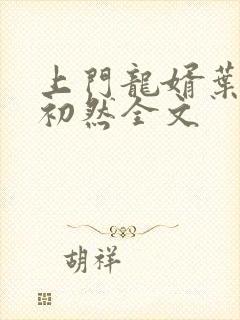 上門龍婿葉
初然全文
胡祥